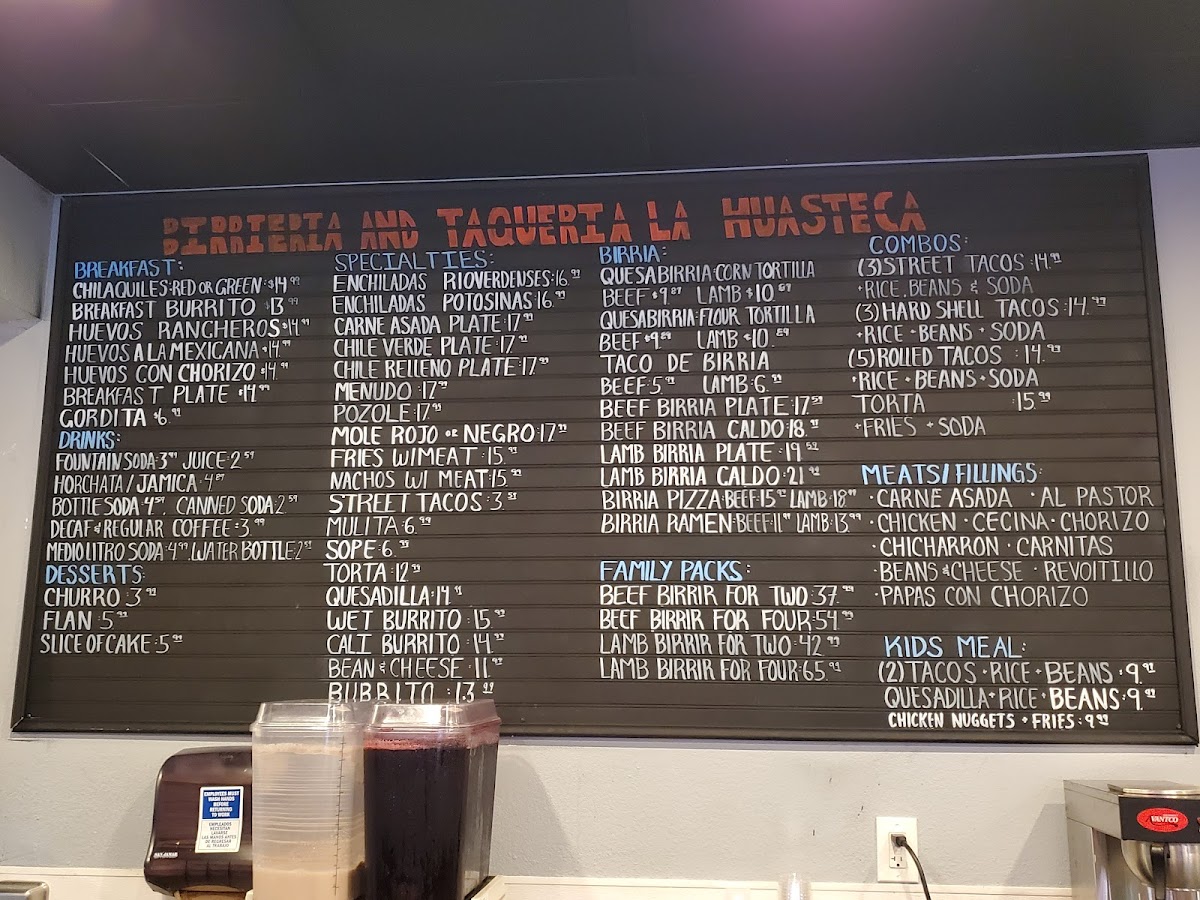 BIRRIERIA AND TAQUERIA LA HUASTECA
BREAKFAST:
CHILAQUILES:RED OR GREEN:$14.99
BREAKFAST BURRITO $13.99
HUEVOS RANCHEROS $14.99
HUEVOS A LA MEXICANA $14.99
HUEVOS CON CHORIZO $14.99
BREAKFAST PLATE $14.99
GORDITA $6.99
DRINKS:
FOUNTAIN SODA:3.99 JUICE:2.59
HORCHATA/JAMICA:4.89
BOTTLE SODA:4.59. CANNED SODA:2.59
DECAF & REGULAR COFFEE:3.99
MEDIO LITRO SODA:4.99/WATER BOTTLE:2
DESSERTS:
CHURRO:3.99
FLAN:5.99
SLICE OF CAKE:5.99
SPECIALTIES:
ENCHILADAS RIOVERDENSES:16.99
ENCHILADAS POTOSINAS:16.99
CARNE ASADA PLATE:17.99
CHILE VERDE PLATE:17.99
CHILE RELLENO PLATE:17.99
MENUDO:17.99
POZOLE:17.99
MOLE ROJO OR NEGRO:17.99
FRIES W/MEAT:15.99
NACHOS W/ MEAT:15.99
STREET TACOS:3.
MULITA:6.99
SOPE:6.
TORTA:12.99
QUESADILLA:14.
WET BURRITO:15.99
CALI BURRITO:14.99
BEAN & CHEESE:11.99
BURRITO:13.99
BIRRIA:
QUESABIRRIA:CORN TORTILLA
BEEF $9.89 LAMB $10.89
QUESABIRRIA:FLOUR TORTILLA
BEEF $9.89 LAMB $10.89
TACO DE BIRRIA
BEEF:5. LAMB:6.
BEEF BIRRIA PLATE:17.59
BEEF BIRRIA CALDO:18.
LAMB BIRRIA PLATE:19.59
LAMB BIRRIA CALDO:21.
BIRRIA PIZZA:BEEF:15.99 LAMB:18.99
BIRRIA RAMEN:BEEF:11.99 LAMB:13.99
FAMILY PACKS:
BEEF BIRRIR FOR TWO:37.99
BEEF BIRRIR FOR FOUR:54.99
LAMB BIRRIR FOR TWO:42.99
LAMB BIRRIR FOR FOUR:65.99
COMBOS:
(3)STREET TACOS:14.99
+RICE, BEANS & SODA
(3)HARD SHELL TACOS:14.99
+RICE+BEANS+SODA
(5)ROLLED TACOS:14.99
+RICE+BEANS+SODA
TORTA :15.99
+FRIES+SODA
MEATS/FILLINGS:
·CARNE ASADA ·AL PASTOR
·CHICKEN·CECINA·CHORIZO
·CHICHARRON·CARNITAS
·BEANS & CHEESE·REVOITILLO
·PAPAS CON CHORIZO
KIDS MEAL:
(2)TACOS+RICE+BEANS:9.99
QUESADILLA+RICE+BEANS:9.99
CHICKEN NUGGETS+FRIES:9.99
EMPLOYEES MUST
WASH HANDS
BEFORE
RETURNING
TO WORK
EMPLEADOS
NECESITAN
LAVARSE
LAS MANOS ANTES
DE REGRESAR
AL TRABAJO
SAN JAMAR